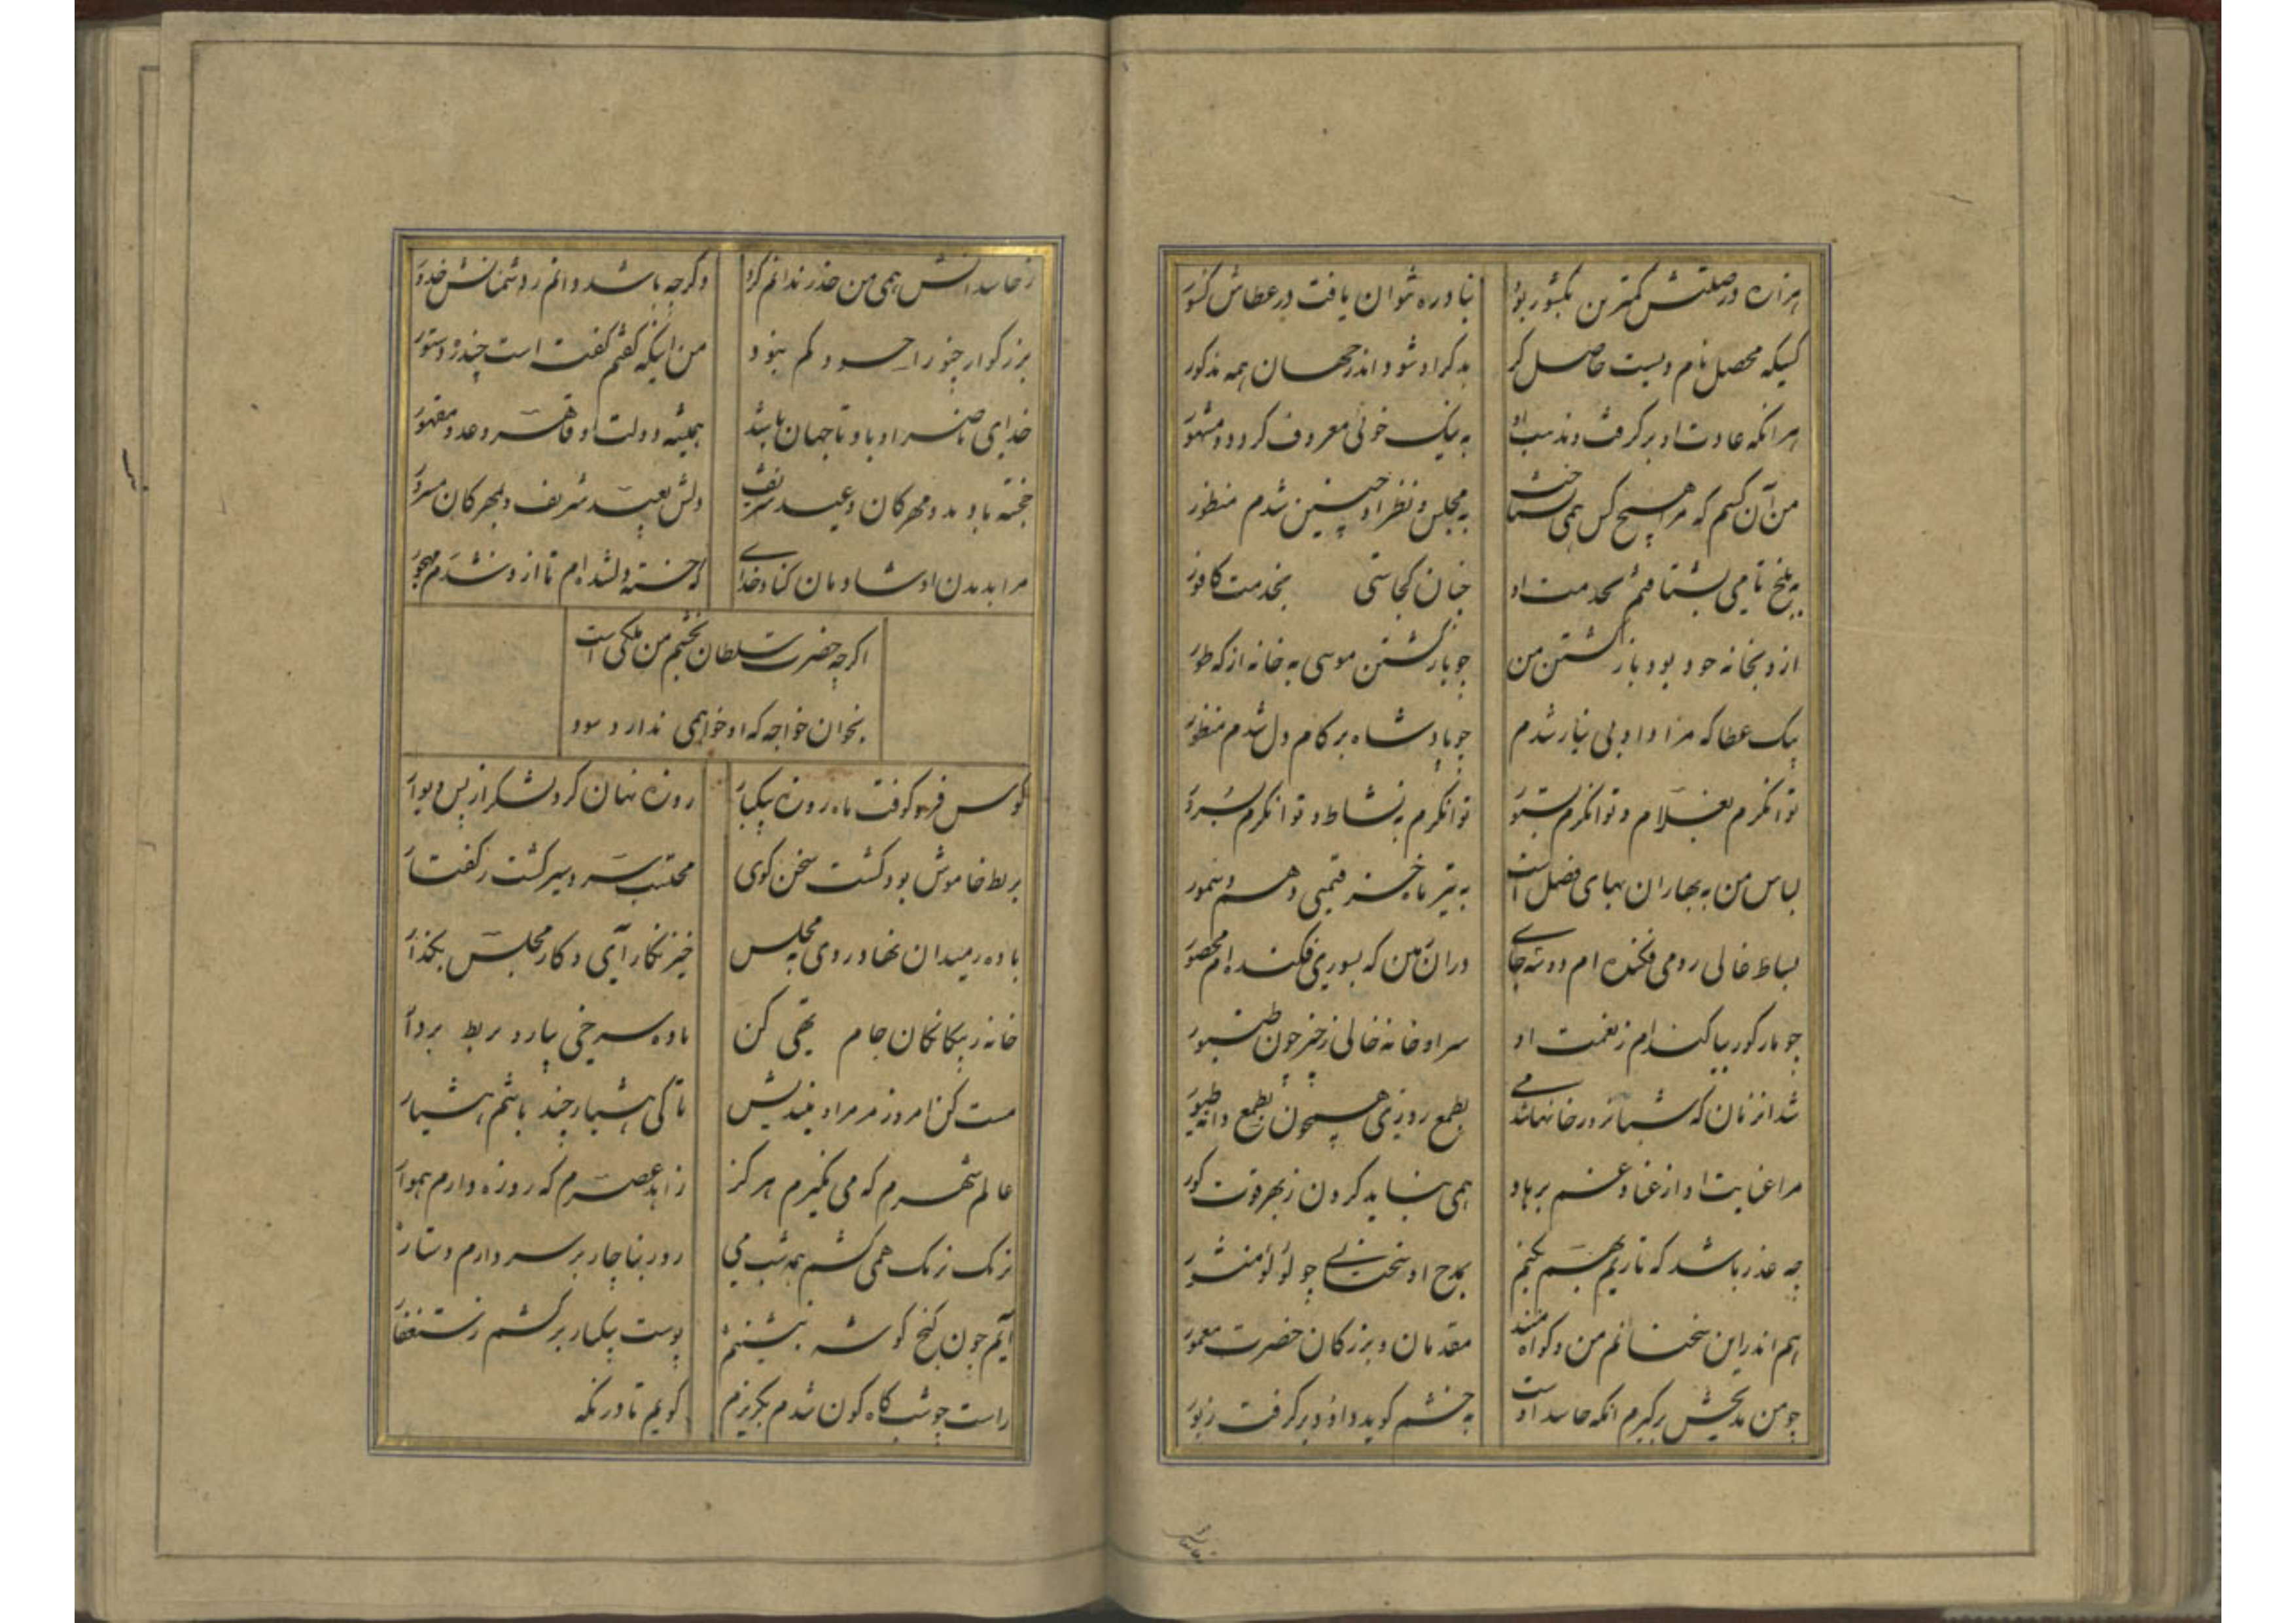 هزاره در صلتش کمترین بکشور بود نباوره شوان یافت در عطاش کسور
کسیکه محصل نام وست حاصل کرد بدکر او شود اندر جهان همه مذکور
هر انکه عادت او برکرفت و مذهب او به نیک خوئی معروف کردد و مشهور
من آن کسم که مرا هیچ کس همی نشناخت به مجلس و نظر او چنین شدم منظور
به بلخ تا می بشتافتم بخدمت او چنان کجا ستی بخدمت کافور
ازو بخانه خود بود باز کشتن من چو باز کشتن موسی به خانه از که طور
بیک عطا که مرا داد بی نیاز شدم چو پادشاه بر کام دل شدم منظور
توانکرم بغلام و توانکرم بستور توانکرم به نشاط و توانکرم بسرور
لباس من به بهاران بهای فضل است به تیر ماه خز قیمتی و هم سمور
بساط غالی رومی فکنده ام دو سه جای در ان مین که بسوری فکنده ام محصور
چو مار کور بیاکنده ام ز نعمت او سرا و خانه خالی ز خیر چون طنبور
شد انزمان که شبانروز در خانها شدمی بطمع روزی همچون بطمع دانه طیور
مرا عنایت او از عنا و غم برهاد همی نباید کردن ز بهر قوت کور
چه عذر باشد که تاریم بهسم نکنم بمدح او سخنانی چو لؤلؤ منثور
هم اندر این سخنانم من و کواه منند مقدمان و بزرکان حضرت معمور
چو من مدیحش برکیرم انکه حاسد اوست به خشم کوید داود برکرفت زبور
ز حاسدانش همی من حذر ندانم کرد وکرچه باشد دانم ز دشمنانش خدور
بزرکوار چنو را حسود کم نبود من اینکه کفتم کفت است چند ره دستور
خدای ناصر او باد تا جهان باشد همیشه دولت او قاهر و عدو مقهور
خجسته باد مدو مهرکان و عید شریف دلش بعید شریف و بمهرکان مسرور
مرا بدیدن او شادمان کناد خدای که خسته دلشده ام تا ازو شدم مهجور
اکرچه حضرت سلطان بچشم من ملکی است
بخوان خواجه که او خواهمی ندارد سود
کوس فرو کوفت ماه روزه بیکبار روزه نهان کرد لشکر از پس دیوار
بربط خاموش بود کشت سخن کوی محتسب سرد سیر کشت ز کفتار
باده ز میدان نهاد روی به مجلس خیز نکار آی و کار مجلس بکذار
خانه ز بیکانکان خام تهی کن باده سرخی بیار و بربط بردار
مست کن امروز مر مرا و میندیش تا کی هشیار چند باشم هشیار
عالم شهرم که می نکیرم هرکز زاهد عصرم که روزه دارم هموار
نرمک نرمک همی کشم همه شب می روز بناچار بر سر دارم دستار
آیم چون کنخ کوشه بنشینم پوست بیکبار برکشم ز ستغفار
راست چو شب کاه کون شدم بکریزم کویم تا در نکه